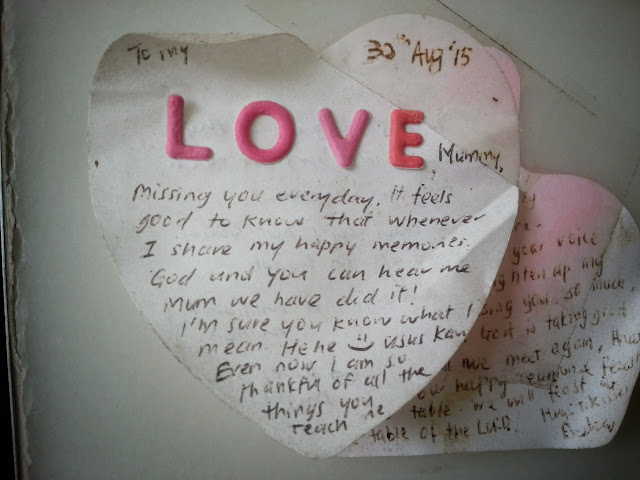 To my
30th Aug '15
LOVE Mummy,
Missing you everyday. It feels
good to know that whenever
I share my happy memories.
God and you can hear me
Mum we have did it!
I'm sure you know what I
mean. Hehe Usus kan
Even now I am so
thankful of all the
things you
teach me
your voice
up my
you so much,
God is taking good
we meet again,
our happy reunion
table we will feast
table of the LORD!